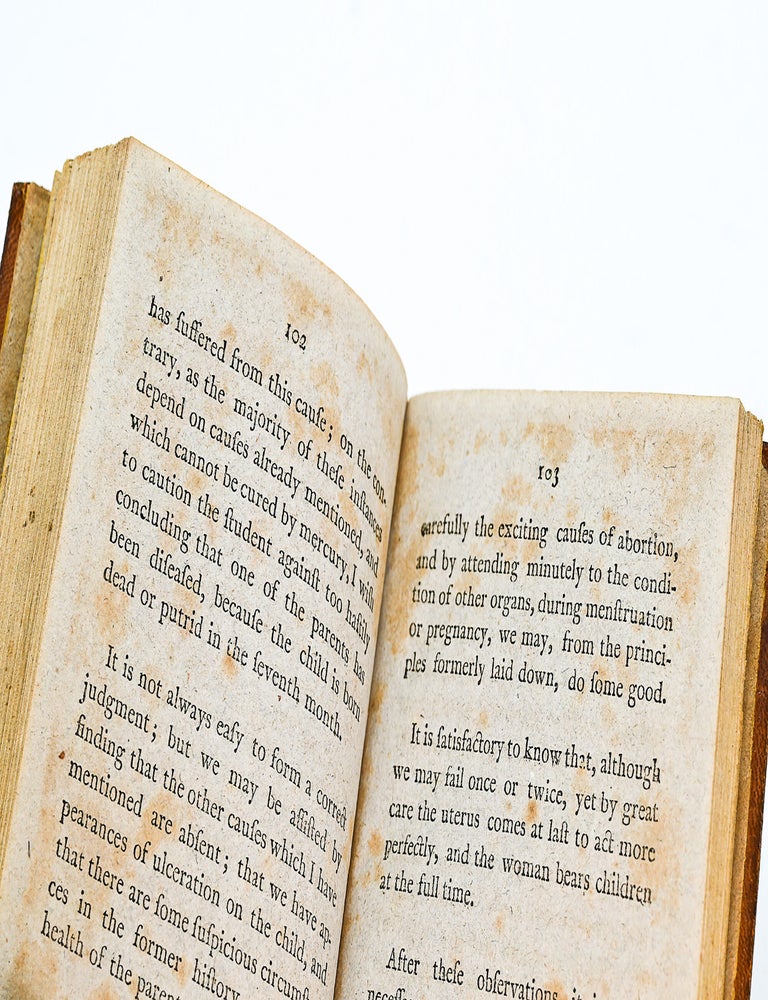 102
has ſuffered from this cauſe; on the con-
trary, as the majority of theſe inſtances
depend on cauſes already mentioned, and
which cannot be cured by mercury, I wiſh
to caution the ſtudent againſt too haſtily
concluding that one of the parents has
been diſeaſed, becauſe the child is born
dead or putrid in the ſeventh month.
It is not always eaſy to form a correct
judgment; but we may be aſſiſted by
finding that the other cauſes which I have
mentioned are abſent; that we have ap-
pearances of ulceration on the child, and
that there are ſome ſuſpicious circumſ
ces in the former hiſtory
health of the parent
103
carefully the exciting cauſes of abortion,
and by attending minutely to the condi-
tion of other organs, during menſtruation
or pregnancy, we may, from the princi-
ples formerly laid down, do ſome good.
It is ſatisfactory to know that, although
we may fail once or twice, yet by great
care the uterus comes at laſt to act more
perfectly, and the woman bears children
at the full time.
After theſe obſervations